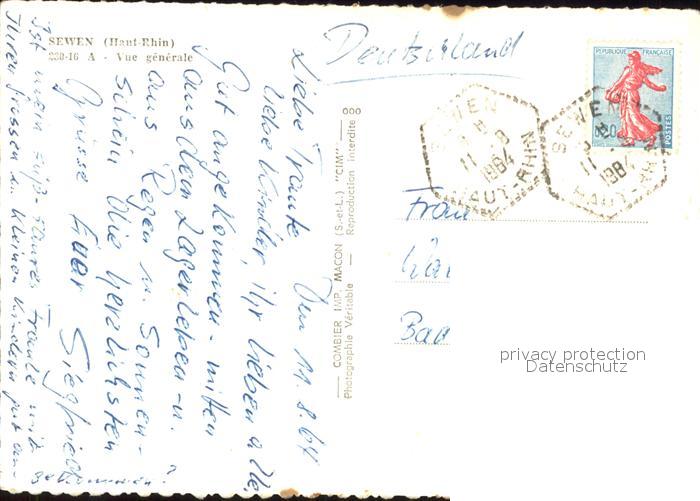 SEWEN (Haut-Rhin)
238-16 A - Vue générale
Deutschland
Den 11.8.64
Liebe Traute
liebe Kinder, ihr lieben alle,
Gut angekommen - mitten
aus dem Lagerleben u.
aus Regen u. Sonnen-
schein Die herzlichsten
Grüsse Euer Siegfried
Ist mein süß-saures Traute mit
Ihren grossen u. kleinen Kindern gut an-
gekommen?
COMBIER IMP. MACON (S.-et-L.) "CIM"
Photographie Véritable — Reproduction interdite
REPUBLIQUE FRANÇAISE
0,20
POSTES
SEWEN
11 8
1964
HAUT-RHIN
SEWEN
11
1964
HAUT-RHIN
Frau
Bad
privacy protection
Datenschutz